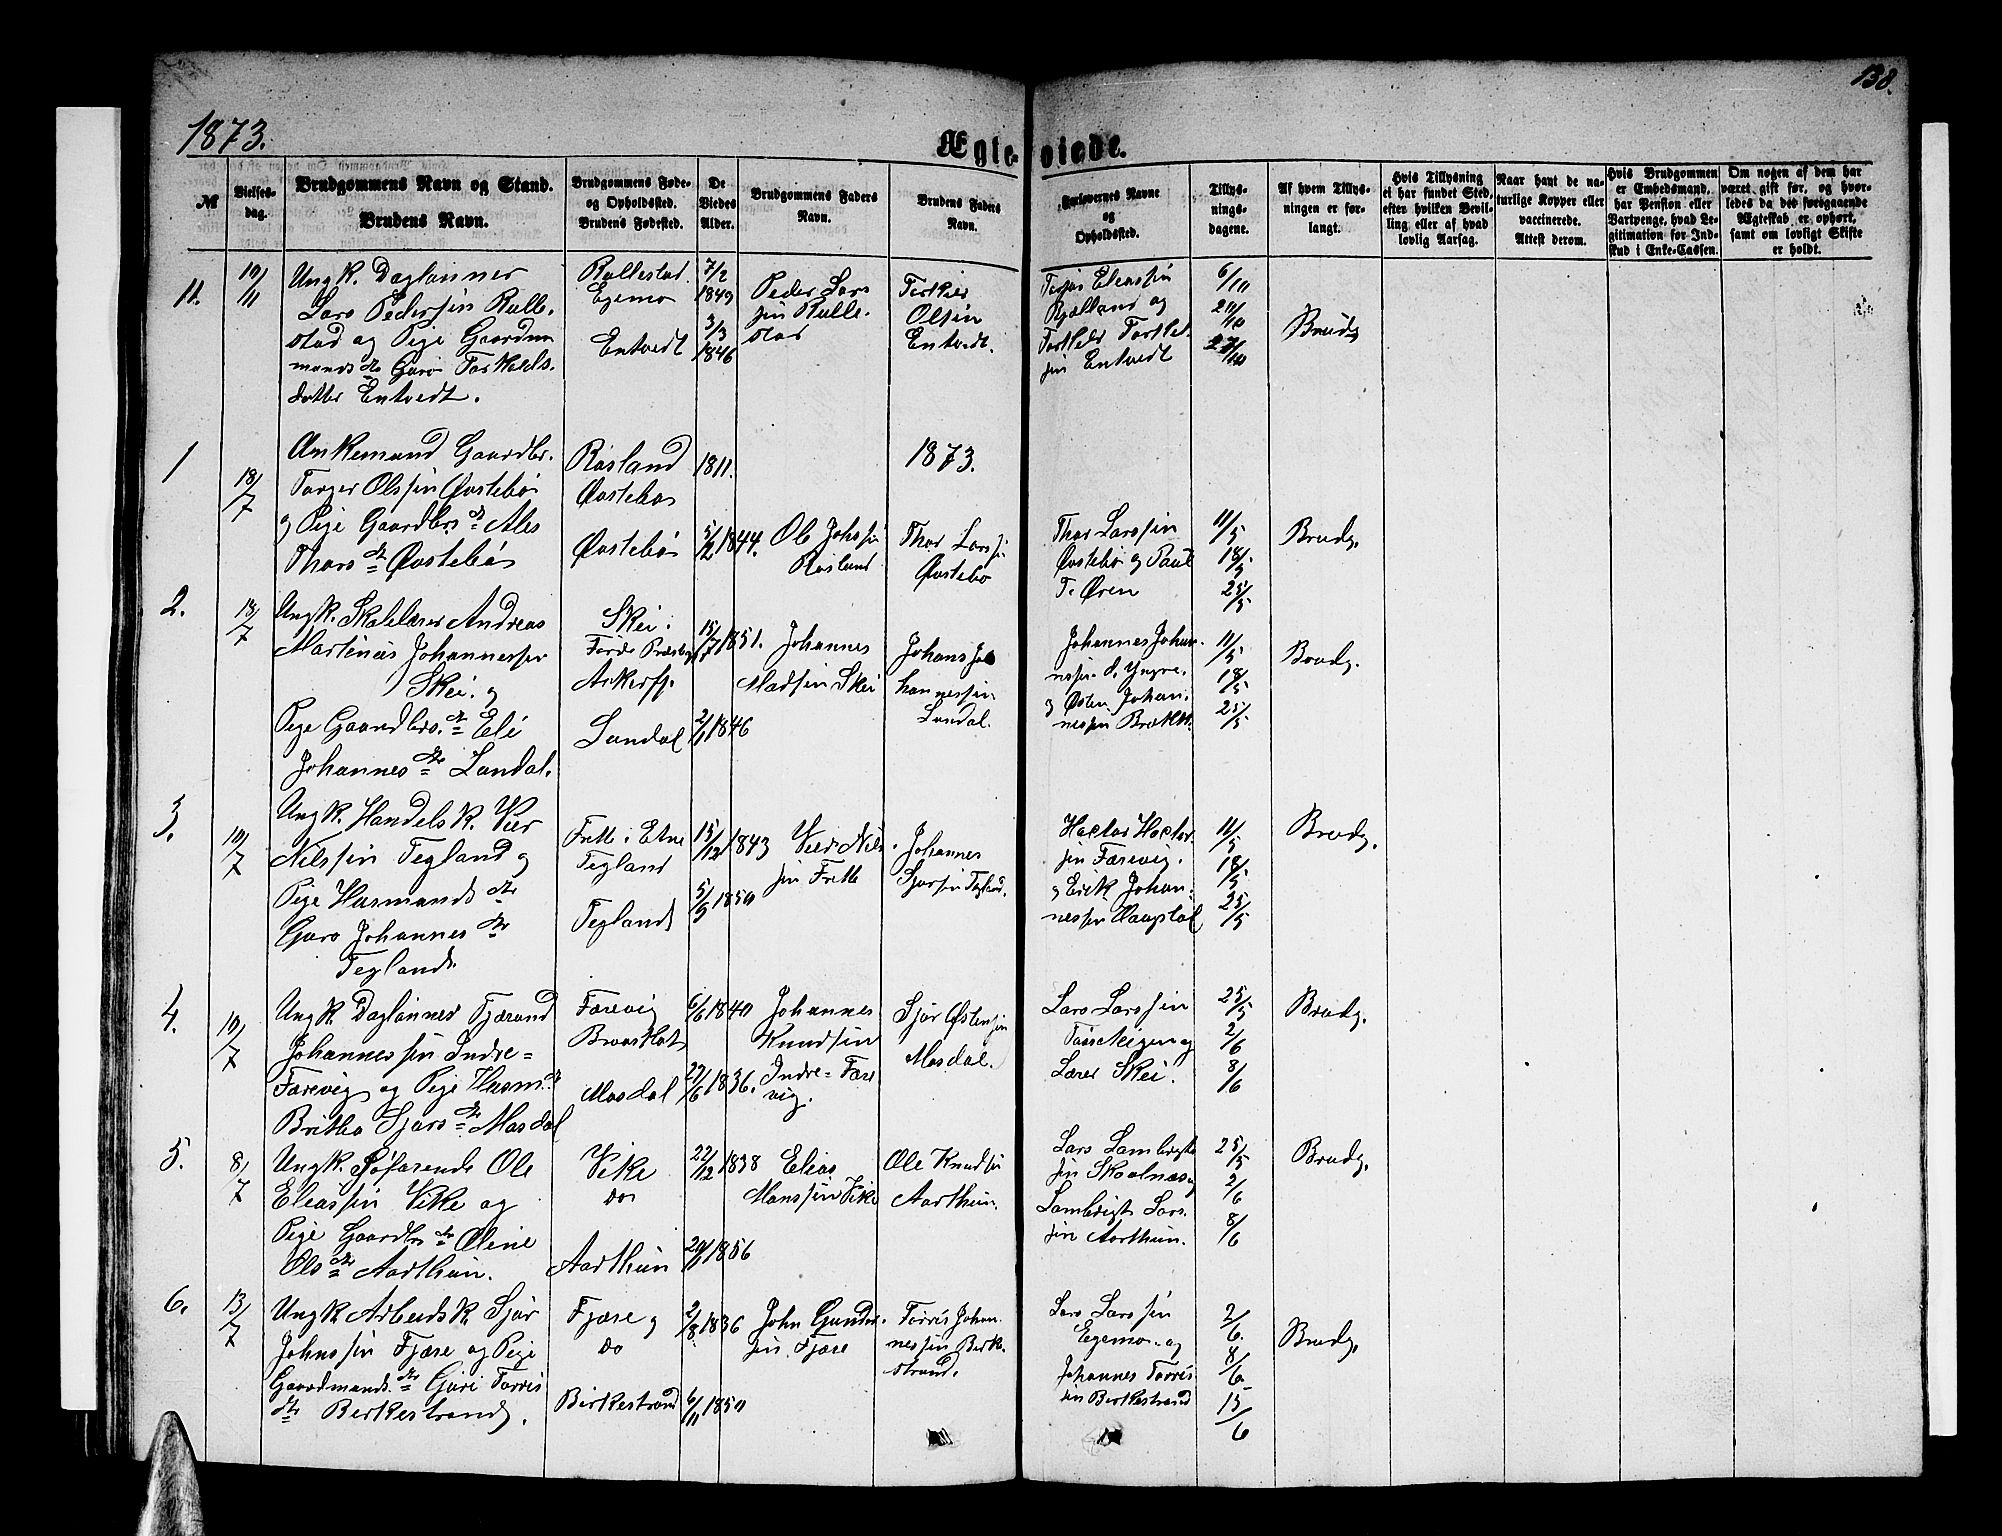 138.
1873.
Ægte-viede.
№
Vielses-dag.
Brudgommens Navn og Stand.
Brudens Navn.
Brudgommens Føde-
og Opholdssted.
Brudens Fødested.
De
Viedes
Alder.
Brudgommens Faders
Navn.
Brudens Faders
Navn.
Forlovernes Navne
og
Opholdssted.
Tillys-
nings-
dagene.
Af hvem Tillys-
ningen er for-
langt.
Hvis Tillysning
ei har fundet Sted,
efter hvilken Bevil-
ling eller af hvad
lovlig Aarsag.
Naar havt de na-
turlige Kopper eller
vaccinerede.
Attest derom.
Hvis Brudgommen
er Embedsmand,
har Pension eller
Vartpenge, hvad Le-
gitimation for Ind-
skud i Enke-Cassen.
Om nogen af dem har
været gift før, og hvor-
ledes da det foregaaende
Ægteskab er ophørt,
samt om lovligt Skifte
er holdt.
11.
Ungk. Daglønner
Lars Pedersen Rulle-
stad og Pige Gaardm
mands dtr Guro Torkels-
datter Entvedt.
Rullestad
Egemo
Entvedt
7/2
1849
3/3
1846
Peder Lars
sen Rulle-
stad
Torkild
Olsen
Entvedt.
Eleassen
Kjelland og
Entvedt
6/10
Brudg
1
18/7
Enkemand Gaardbr.
Torger Olssen Øvstebø
og Pige Gaardbrs dr Ales
Thors dr Øvstebø
Røsland
Øvstebø
Øvstebø
1811.
5/2 1844.
Ole Johssen
Røsland
1873.
Thor Larssen
Øvstebø
Thor Larssen
Øvstebø og Paul
T. Øren
11/5
18/5
25/5
Brudg.
2.
18/7
Ungk. Skolelærer Andreas
Martinus Johannessen
Skei. og
Pige Gaardbrs. dr Eli
Johannes dtr Landal.
Skei.
Førde Præstegj
Askersf.
Landal
15/7 1851.
2/1 1846
Johannes
Madssen Skei
Johans Jo
hannessen
Landal.
Johannes Johan-
nessen d. Yngre.
og Østen Johan-
nessen Brækk.
11/5
18/5
25/5
Brudg.
3.
10/7
Ungk. Handelsk. Vier
Nilssen Tegland og
Pige Husmands dtr
Guro Johannes dtr
Tegland.
Frette i Etne
Tegland
Tegland
15/12 1843
5/9 1850
Vier Nils
sen Frette
Johannes
Sjurssen Tegland.
Hactor Hactor-
sen Færevig.
og Erik Johan-
nessen
11/5
18/5
25/5
Brudg.
4.
10/7
Ungk Daglønner Tjærand
Johannessen Indre=
Færevig og Pige Husm. dr
Britha Sjurs dtr Mosdal
Færevig
Mosdal
6/6 1840
1836.
Johannes
Knudssen
Indre=Fære
vig.
Sjur Østenssen
Mosdal.
Lars Larssen
Lærer Skei.
25/5
2/6
8/6
Brudg.
5.
8/7
Ungk. Søfarende Ole
Eleassen Vike og
Pige Gaardbr dr Oline
Ols dtr Aarthun.
Vike
do
Aarthun
22/12 1838
1856
Elias
Monssen Vike
Ole Knudssen
Aarthun.
Lars Lambrigts
sen Skoalnæs og
Lambrigt Lars-
sen Aarthun.
25/5
2/6
8/6
Brudg.
6.
13/7
Ungk Arbeidsk Sjur
Johnssen Fjære og Pige
Gaardmands dtr Guri Torris
dtr Birkestrand.
Fjære og
do
Birkestrand
2/8 1836
6/11 1850
John Gunder-
sen. Fjære
Torris Johan-
nessen Birke-
strand.
Lars Larssen
Egemo. og
Johannes Torris
sen Birkestrand
2/6
8/6
15/6
Brudg.